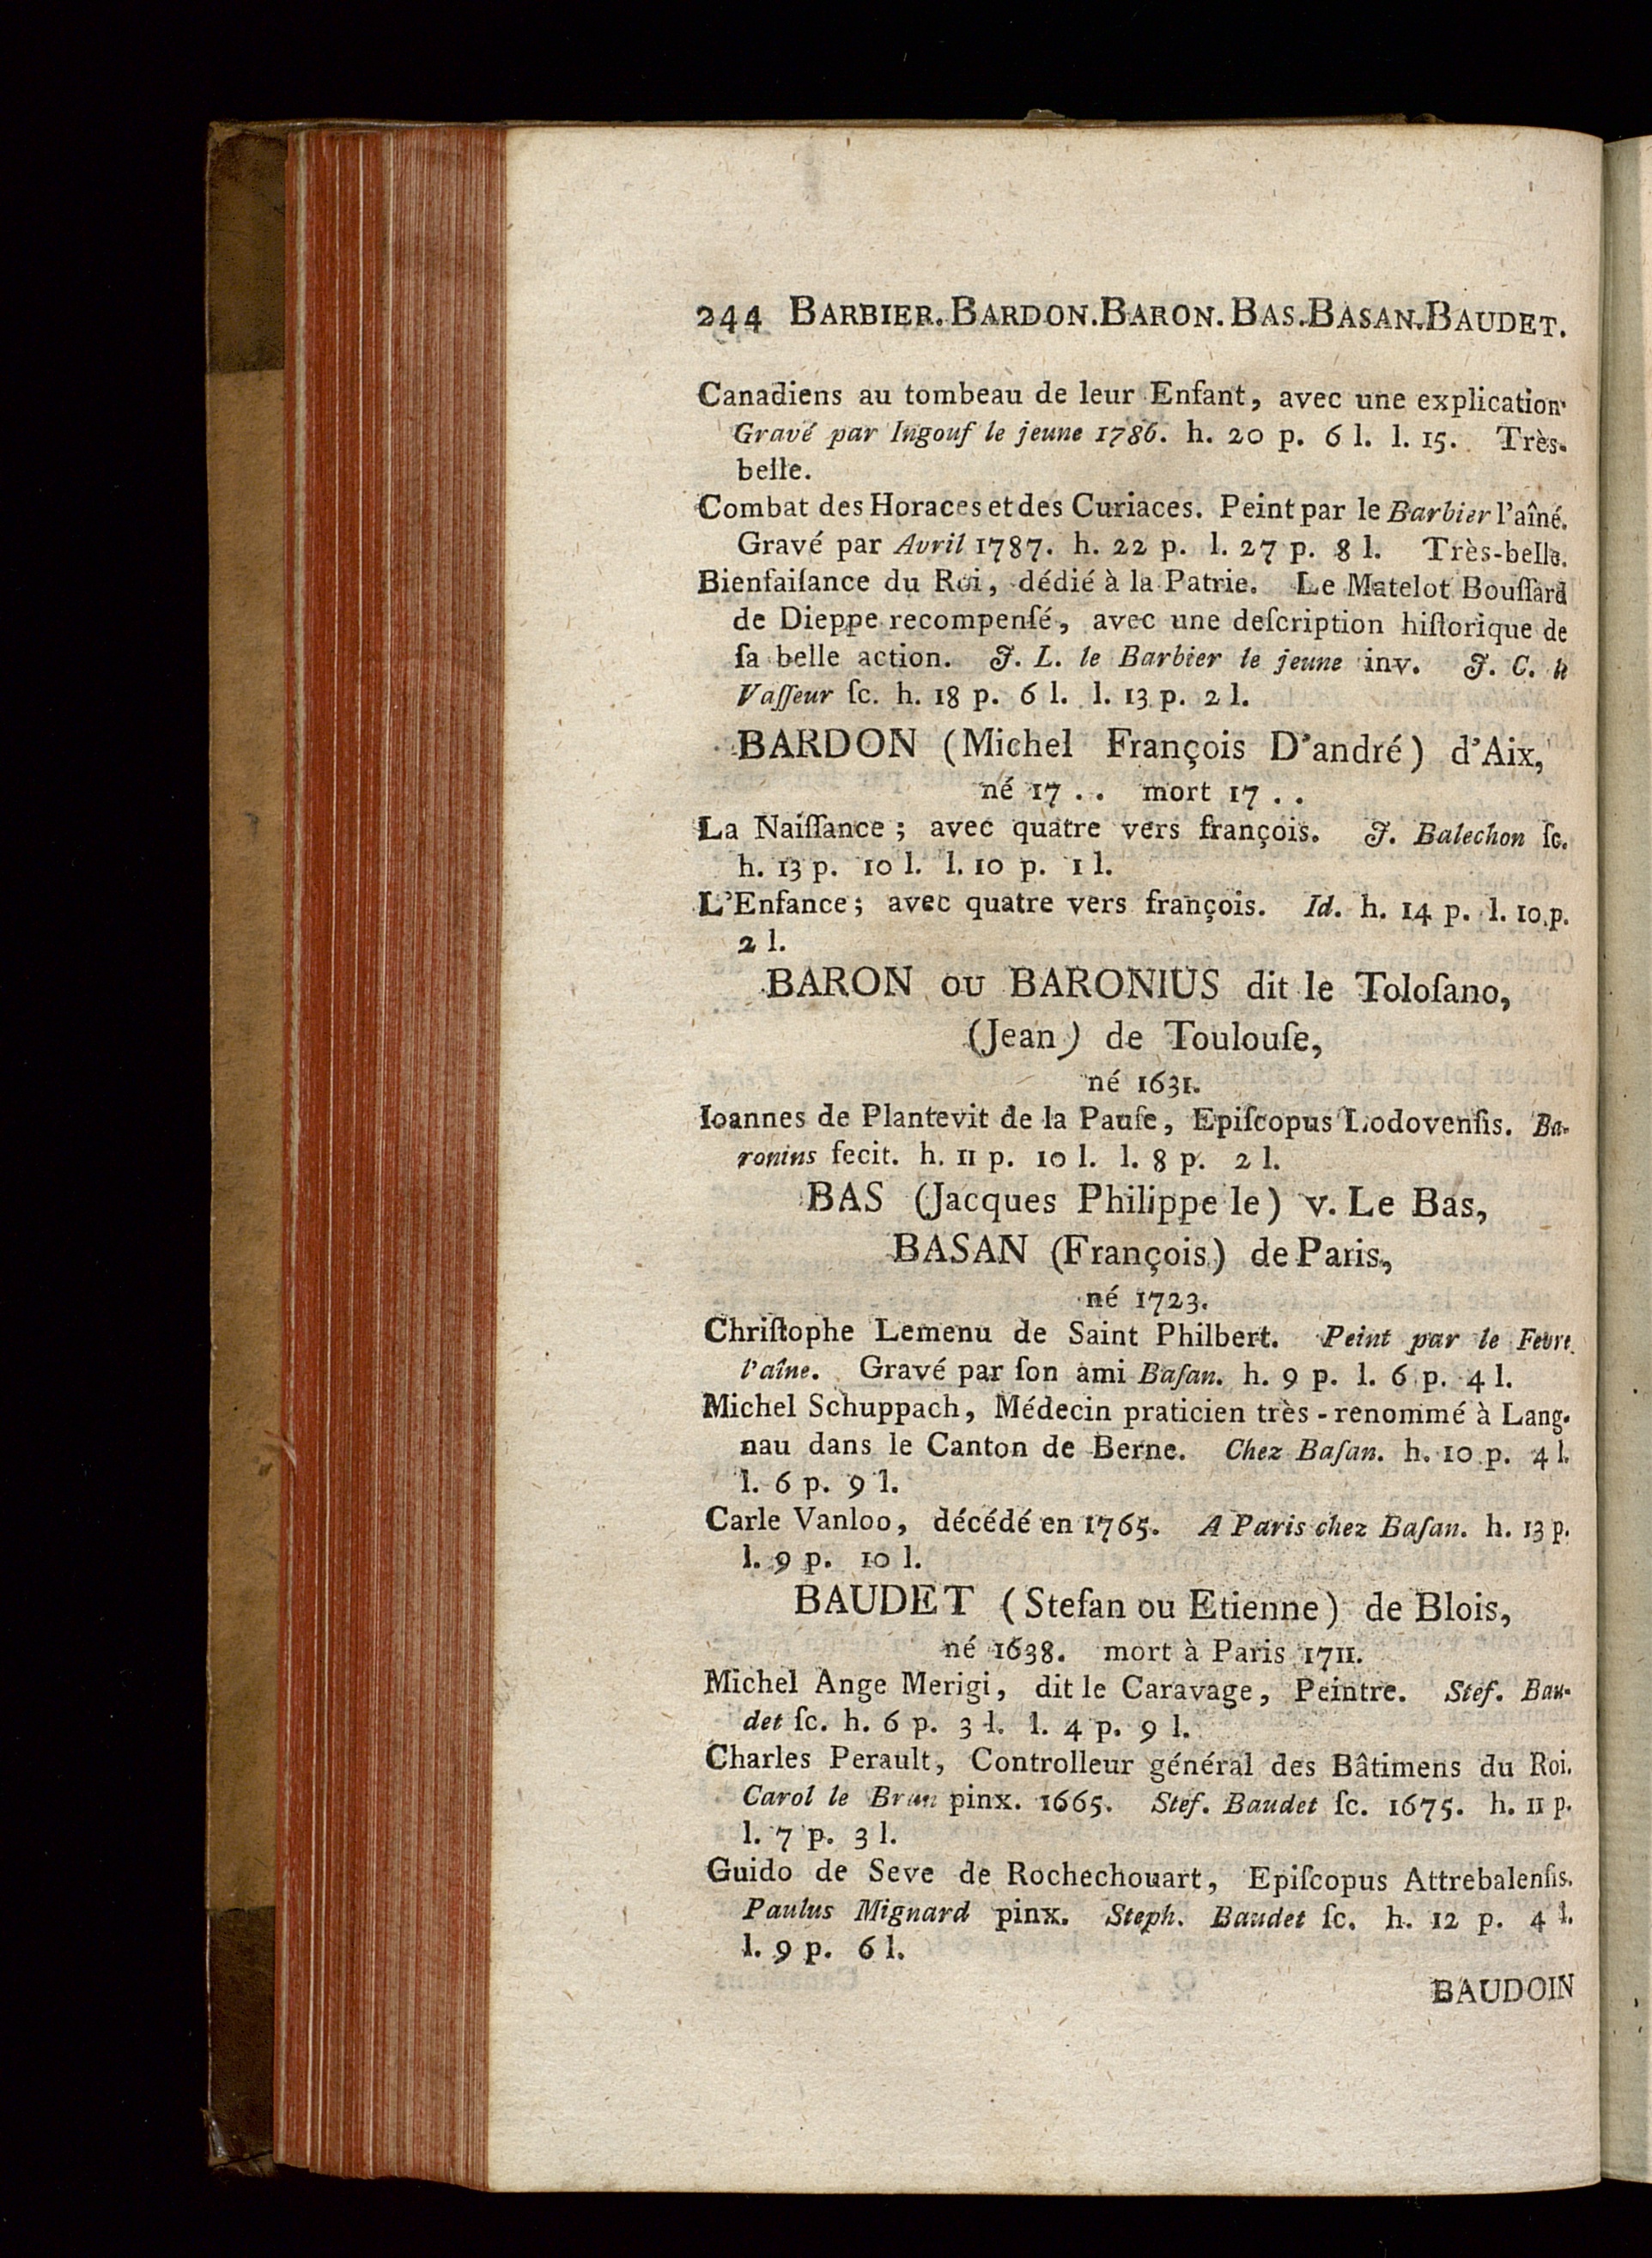 244 BARBIER. BARDON. BARON. BAS. BASAN. BAUDET.
Canadiens au tombeau de leur Enfant, avec une explication
Gravé par Ingouf le jeune 1786. h. 20 p. 6 l. l. 15. Très-
belle.
Combat des Horaces et des Curiaces. Peint par le Barbier l'aîné.
Gravé par Avril 1787. h. 22 p. l. 27 p. 8 l. Très-belle.
Bienfaiſance du Roi, dédié à la Patrie. Le Matelot Bouſſard
de Dieppe recompenſé, avec une deſcription hiſtorique de
ſa belle action. J. L. le Barbier le jeune inv. J. C. le
Vaſſeur ſc. h. 18 p. 6 l. l. 13 p. 2 l.
BARDON (Michel François D'andré) d'Aix,
né 17 . . mort 17 . .
La Naiſſance; avec quatre vers françois. J. Balechon ſc.
h. 13 p. 10 l. l. 10 p. 1 l.
L'Enfance; avec quatre vers françois. Id. h. 14 p. l. 10 p.
2 l.
BARON OU BARONIUS dit le Toloſano,
(Jean) de Toulouſe,
né 1631.
Ioannes de Plantevit de la Pauſe, Epiſcopus Lodovenſis. Ba-
ronins fecit. h. 11 p. 10 l. l. 8 p. 2 l.
BAS (Jacques Philippe le) v. Le Bas,
BASAN (François) de Paris,
né 1723.
Chriſtophe Lemenu de Saint Philbert. Peint par le Fevre
l'aîne. Gravé par ſon ami Baſan. h. 9 p. l. 6 p. 4 l.
Michel Schuppach, Médecin praticien très-renommé à Lang-
nau dans le Canton de Berne. Chez Baſan. h. 10 p. 4 l.
l. 6 p. 9 l.
Carle Vanloo, décédé en 1765. A Paris chez Baſan. h. 13 p.
l. 9 p. 10 l.
BAUDET (Stefan ou Etienne) de Blois,
né 1638. mort à Paris 1711.
Michel Ange Merigi, dit le Caravage, Peintre. Stef. Bau-
det ſc. h. 6 p. 3 l. l. 4 p. 9 l.
Charles Perault, Controlleur général des Bâtimens du Roi.
Carol le Brun pinx. 1665. Stef. Baudet ſc. 1675. h. 11 p.
l. 7 p. 3 l.
Guido de Seve de Rochechouart, Epiſcopus Attrebalenſis.
Paulus Mignard pinx. Steph. Baudet ſc. h. 12 p. 4 l.
l. 9 p. 6 l.
BAUDOIN